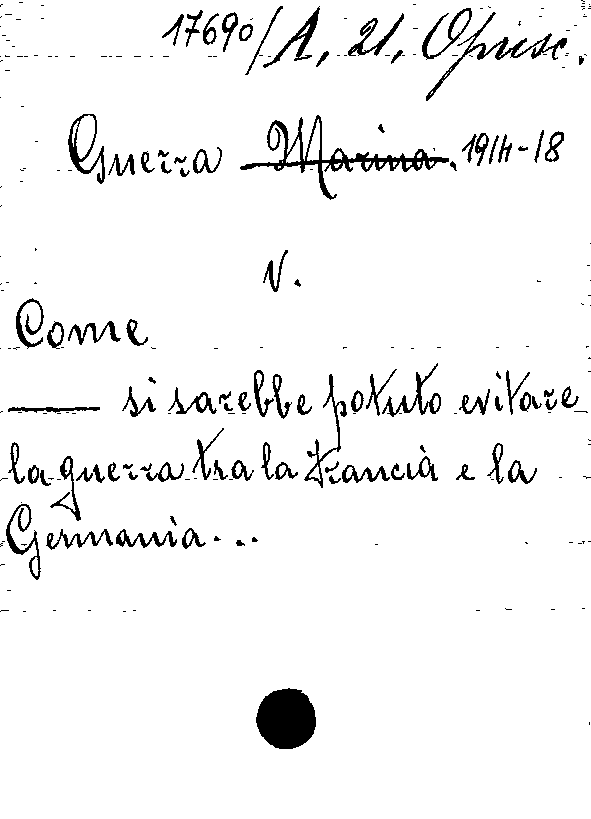 17690/A, 21, Opusc.
Guerra Marina. 1914-18
V.
Come
—— si sarebbe potuto evitare
la guerra tra la Francia e la
Germania...